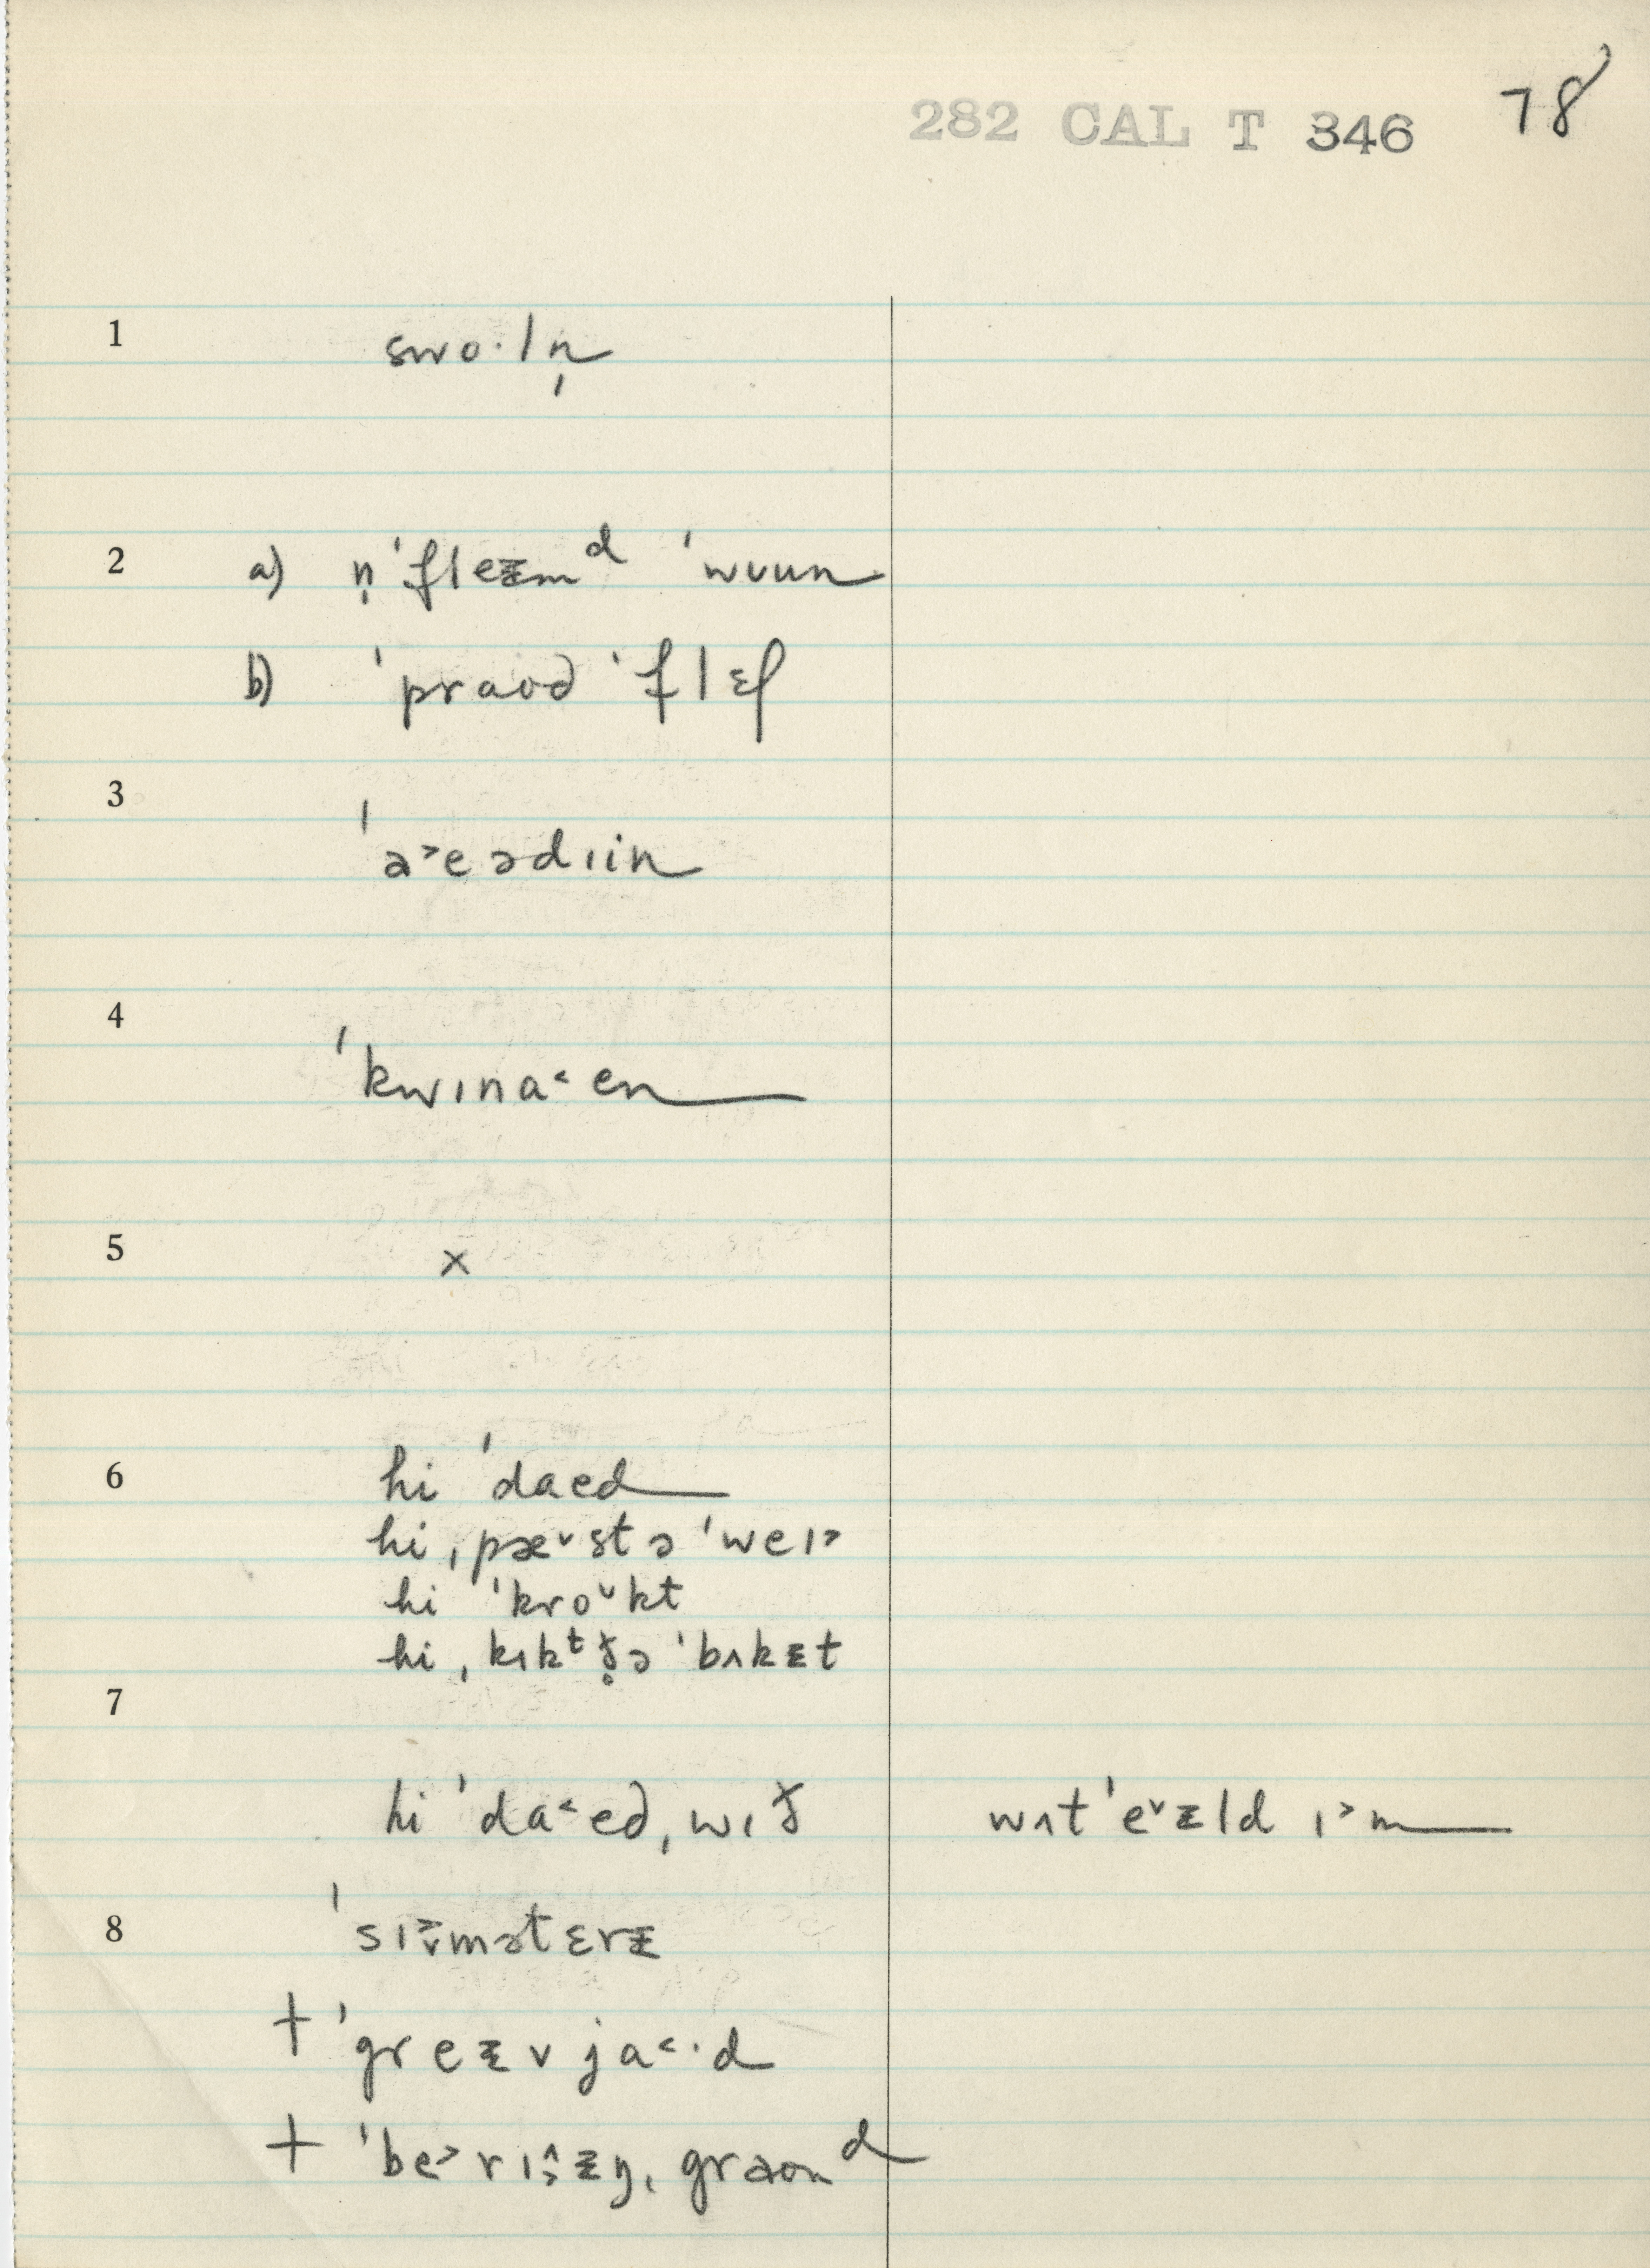 282 CAL T 346 78
1 swo·ln̩
2 a) n̩ ˈfleᵻmᵈ ˈwuun
b) ˈpraʊd ˈflɛʃ
3 ˈa˃eədɪin
4 ˈkwɪna˂en
5 x
6 hi ˈdaed
hi ˌpæ˅st ə ˈweɪ˃
hi ˈkro˅kt
hi ˌkɪkᵗ ð̥ə ˈbʌkᵻt
7
hi ˈda˂ed ˌwɪð wʌt ˈe˅ᵻld ɪ˃m
8 ˈsɪ˅˃mətɛrᵻ
+ ˈgreᵻv ja˂·d
+ ˈbe˃rɪ˄˃ᵻŋ ˌgraʊnᵈ